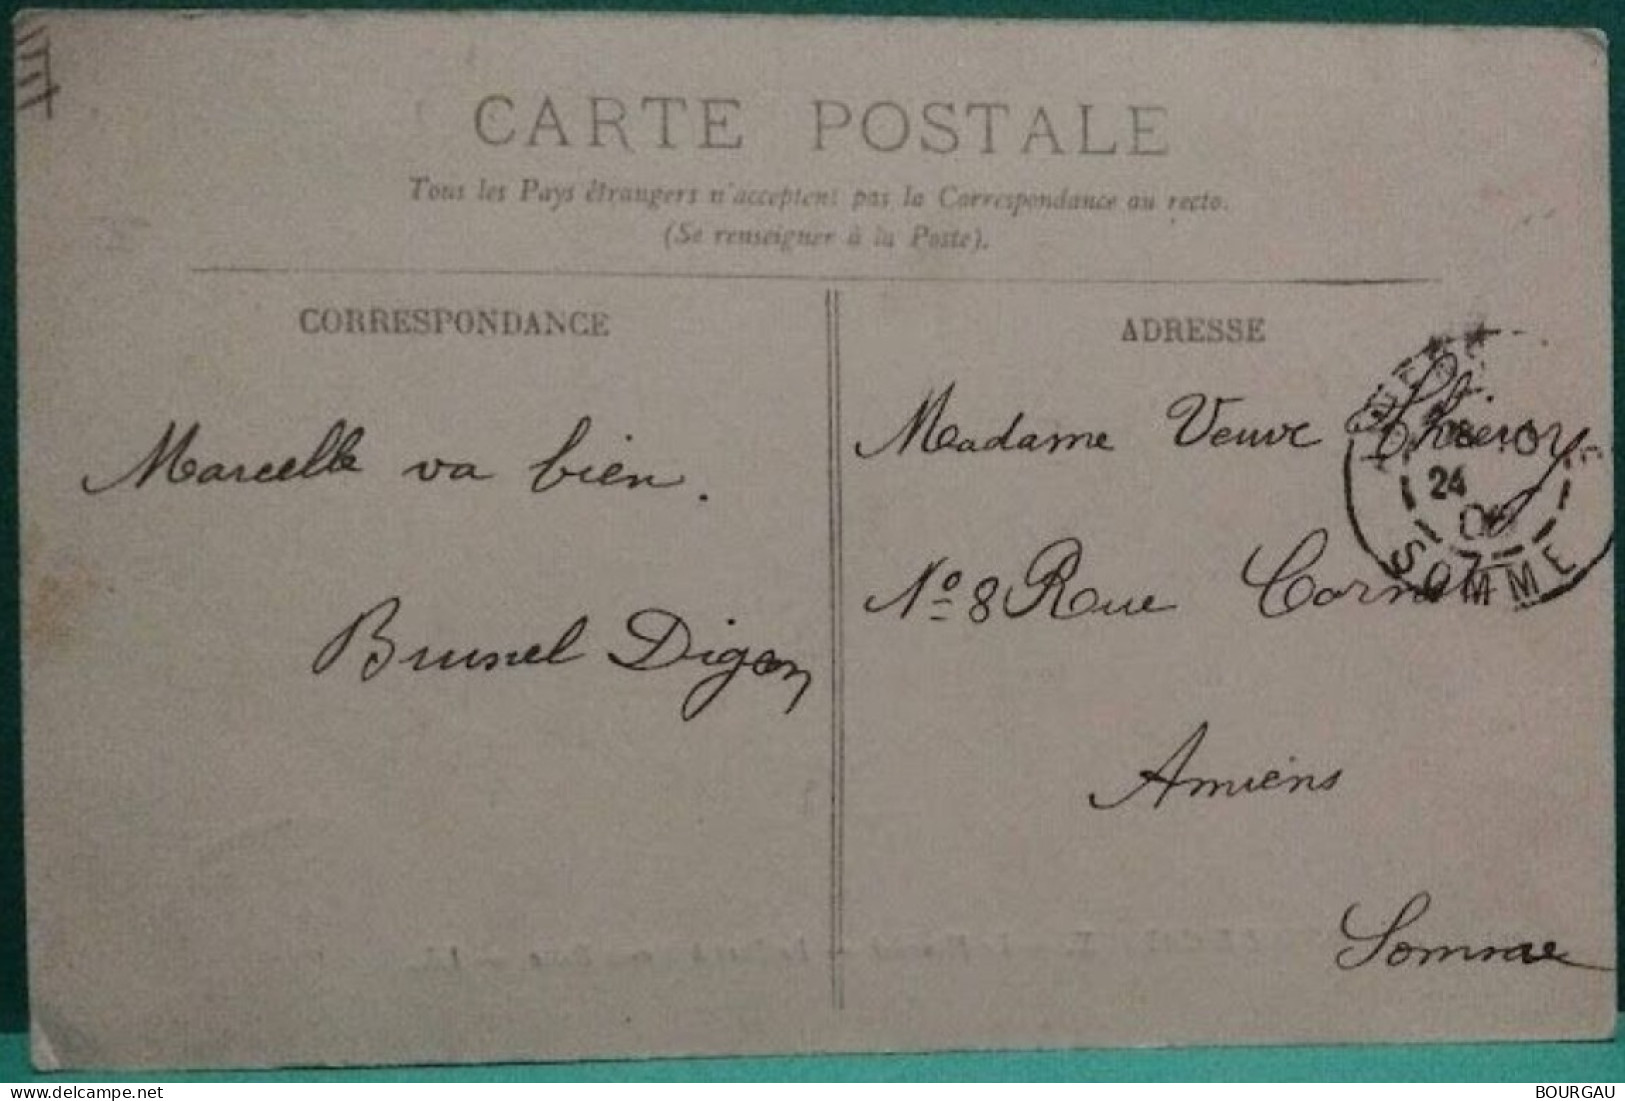 CARTE POSTALE
Tous les Pays étrangers n'acceptent pas la Correspondance au recto.
(Se renseigner à la Poste).
CORRESPONDANCE
Marcelle va bien.
Brunel Digeon
ADRESSE
Madame Veuve Thierry
No 8 Rue Cornot
Amiens
Somme
24
SOMME
www.delcampe.net
BOURGAU